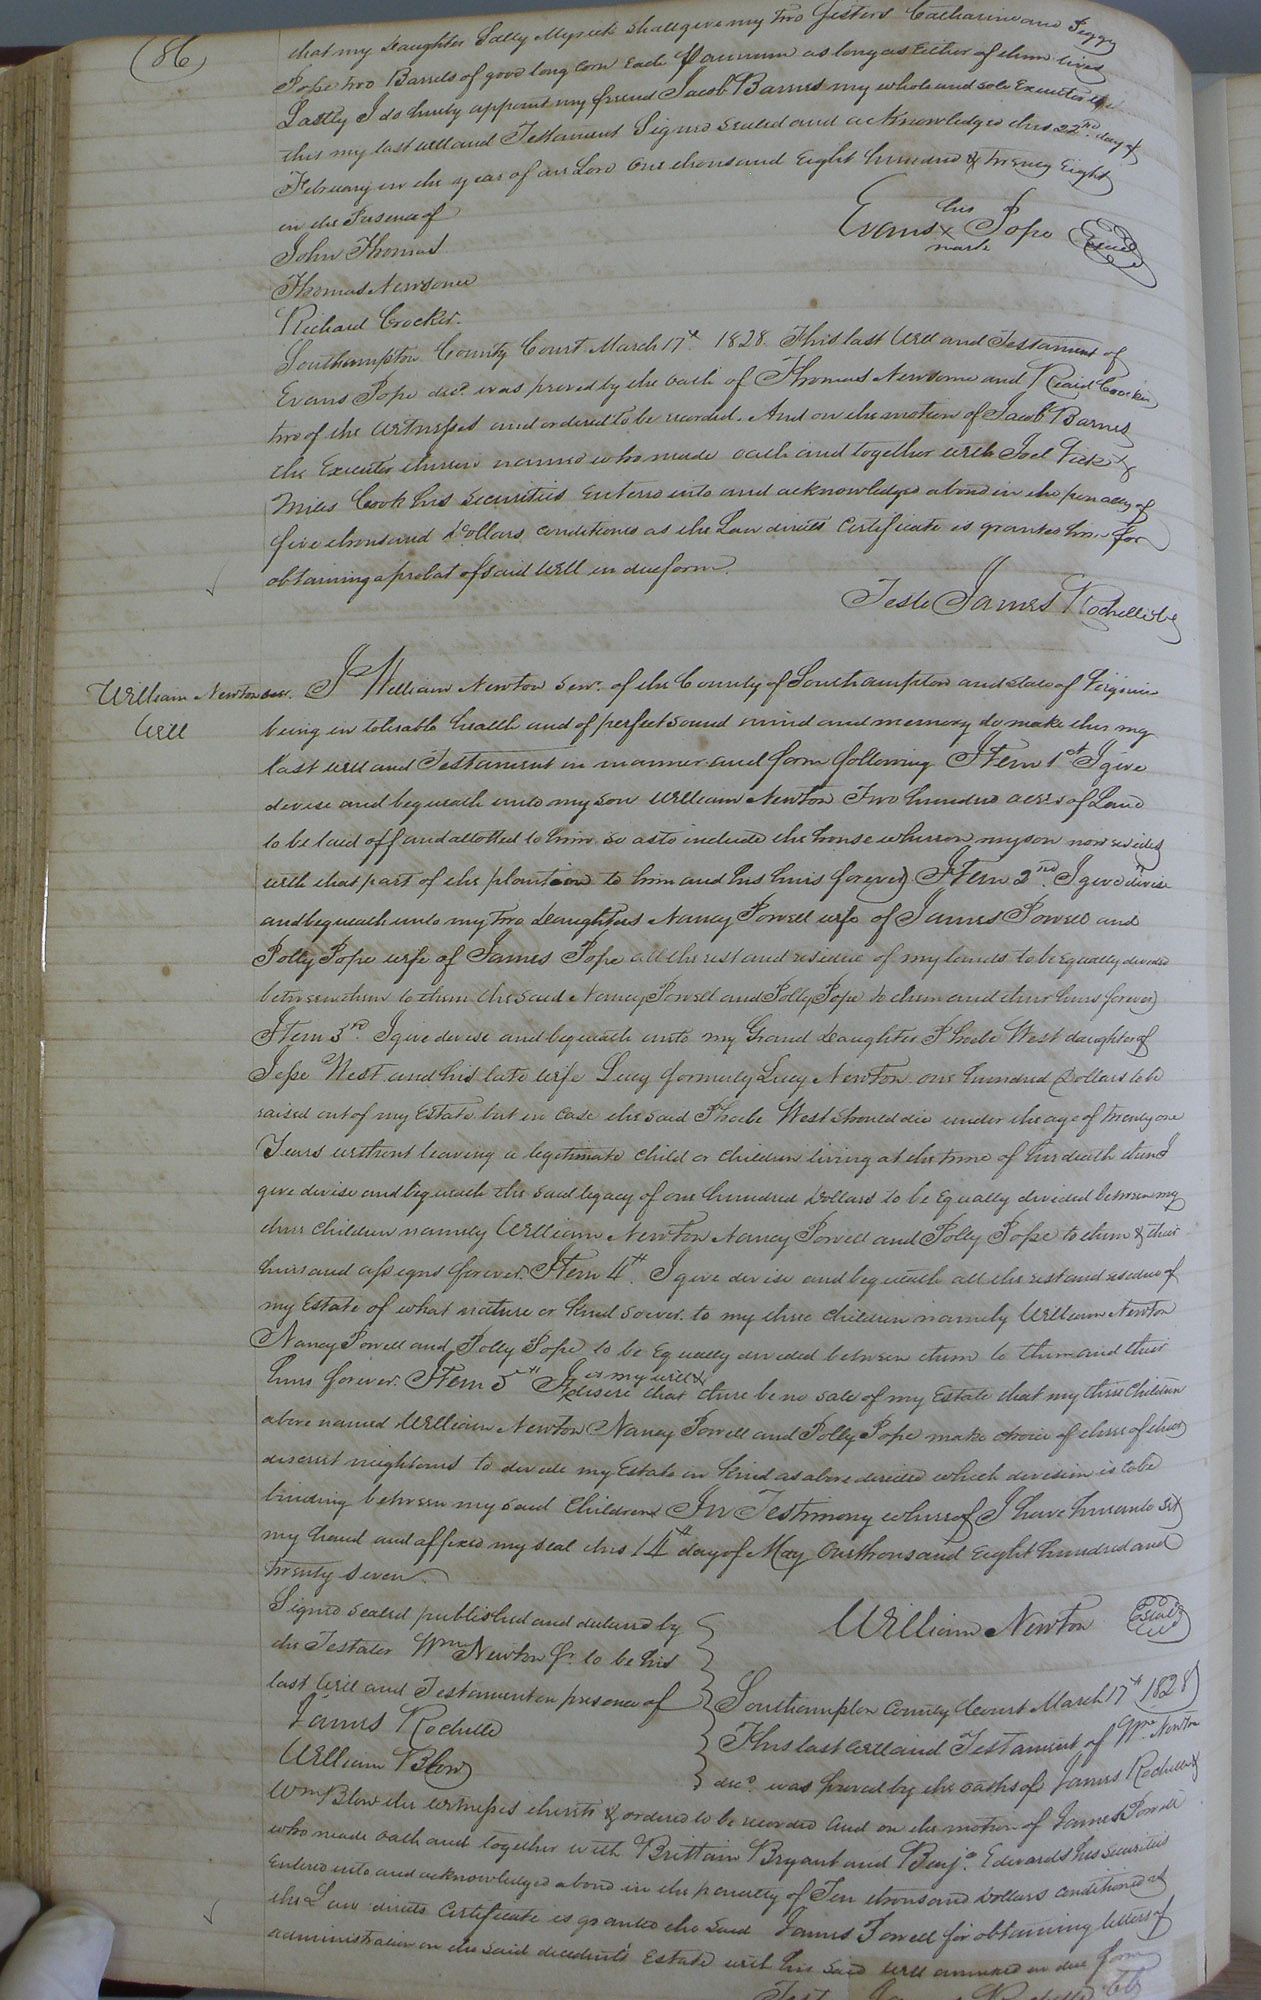 86
that my Daughter Sally Myrick shall give my two Sisters Catharine and Peggy
Pope two Barrels of good long corn each pr annum as long as Either of them lives
Lastly I do hereby appoint my friend Jacob Barnes my whole and sole Executor to
this my last will and Testament Signed Sealed and acknowledged this 22nd day of
February in the year of our Lord One thousand Eight hundred & twenty Eight
in the Presence of
John Thomas
Thomas Newsome
Richard Crocker.
his
Evans x Pope Seal
mark
Southampton County Court March 17th 1828. This last Will and Testament of
Evans Pope decd. was proved by the oath of Thomas Newsome and Richd Crocker
two of the Witnesses and ordered to be recorded. And on the motion of Jacob Barnes
the Executor therein named who made oath and together with Joel &
Miles Cook his Securities Entered into and acknowledged a bond in the penalty of
five thousand Dollars conditioned as the Law directs Certificate is granted him for
obtaining a probat of said Will in due form.
Teste James Rochelle Clk
William Newton senr.
Will
I William Newton Senr. of the County of Southampton and State of Virginia
being in tolerable health and of perfect sound mind and memory do make this my
last will and Testament in manner and form following Item 1st I give
devise and bequeath unto my son William Newton Two hundred acres of Land
to be laid off and allotted to him so as to include the house whereon my son now resides
with that part of the plantion to him and his heirs forever Item 2nd. I give devise
and bequeath unto my two Daughters Nancy Powell wife of James Powell and
Polly Pope wife of James Pope all the rest and residue of my lands to be Equally divided
between them to them the said Nancy Powell and Polly Pope to them and their heirs forever
Item 3rd. I give devise and bequeath unto my Grand Daughter Phoebe West daughter of
Jesse West and his late wife Lucy formerly Lucy Newton one hundred Dollars to be
raised out of my Estate but in case the said Phoebe West should die under the age of twenty one
Years without leaving a legetimate child or children living at the time of her death then I
give devise and bequeath the said legacy of one hundred Dollars to be Equally divided between my
three children namely William Newton Nancy Powell and Polly Pope to them & their
heirs and assigns forever. Item 4th. I give devise and bequeath all the rest and residue of
my Estate of what nature or kind soever. to my three children namely William Newton
Nancy Powell and Polly Pope to be Equally divided between them to them and their
heirs forever. Item 5th It is my will & desire that there be no sale of my Estate that my three children
above named William Newton Nancy Powell and Polly Pope make choice of three of their
discreet neighbours to divide my Estate in kind as above desired which division is to be
binding between my said Children In Testimony whereof I have hereunto set
my hand and affixed my seal this 14th day of May One thousand Eight hundred and
twenty seven.
Signed sealed published and declared by
the Testator Wm Newton Sr. to be his
last Will and Testament in presence of
James Rochelle
William Blow
William Newton Seal
Southampton County Court March 17th 1828
This last Will and Testament of Wm. Newton
decd. was proved by the oaths of James Rochelle &
Wm Blow the witnesses thereto & ordered to be recorded And on the motion of James Powell
who made oath and together with Brittain Bryant and Benja. Edwards his securities
Entered into and acknowledged a bond in the penalty of Ten thousand Dollars conditioned as
the Law directs Certificate is granted the said James Powell for obtaining letters of
administration on the said decedents Estate with his said Will annexed in due form
Test James Rochelle Clk